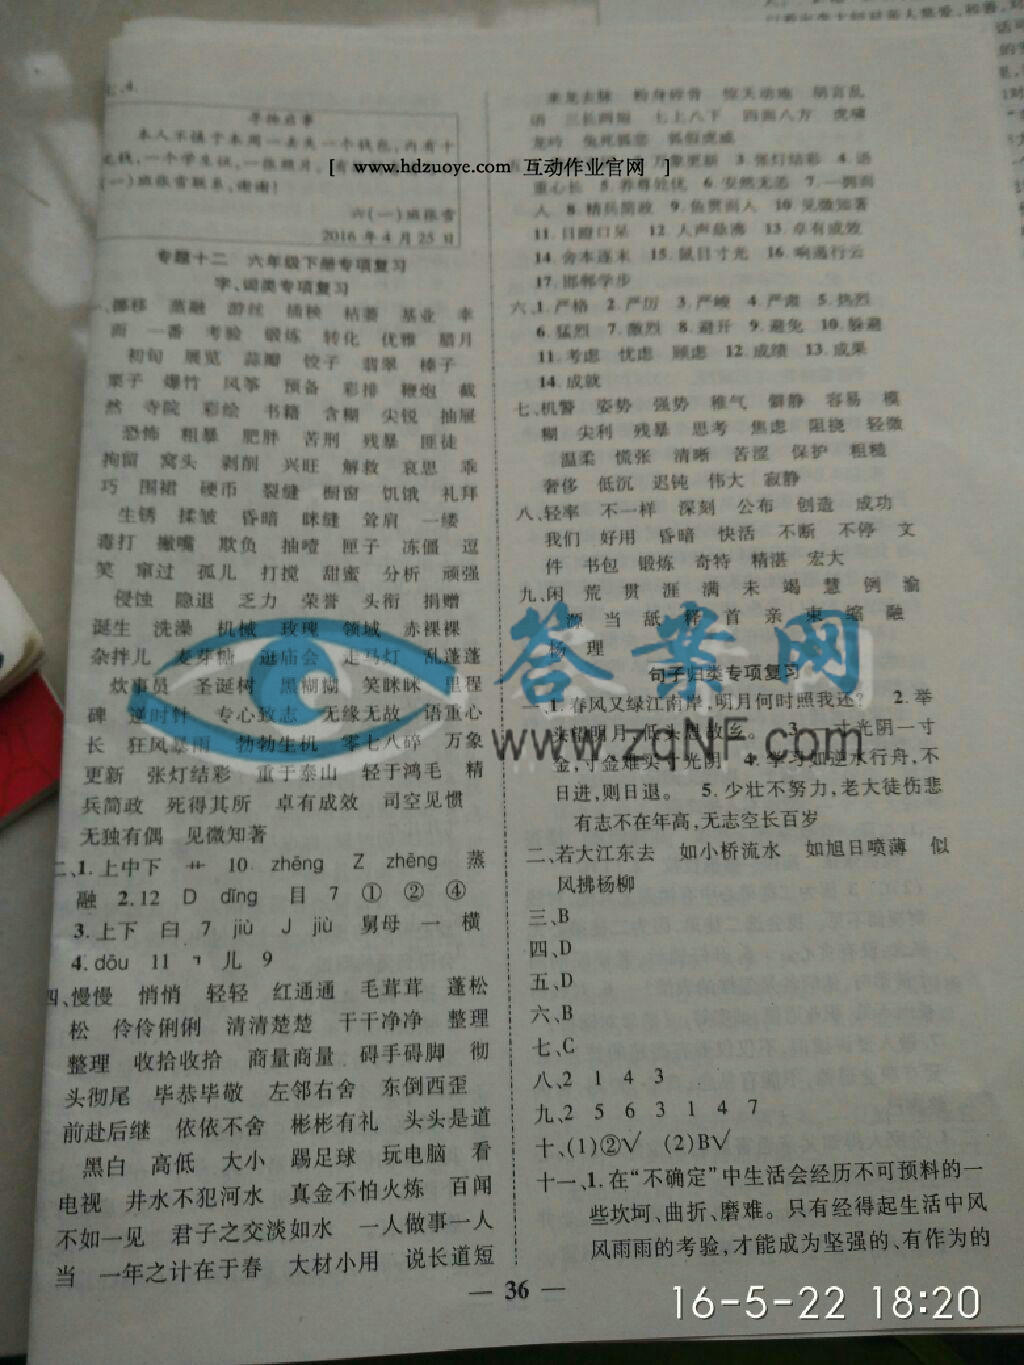 七、4.
寻物启事
本人不慎于本周一丢失一个钱包,内有十
元钱,一个学生证,一张照片。有
(一)班张雪联系,谢谢!
六(一)班张雪
2016年4月25日
专题十二 六年级下册专项复习
字、词类专项复习
一、挪移 蒸融 游丝 插秧 枯萎 基业 幸
而 一番 考验 锻炼 转化 优雅 腊月
初旬 展览 蒜瓣 饺子 翡翠 榛子
栗子 爆竹 风筝 预备 彩排 鞭炮 截
然 寺院 彩绘 书籍 含糊 尖锐 抽屉
恐怖 粗暴 肥胖 苦刑 残暴 匪徒
拘留 窝头 剥削 兴旺 解救 哀思 乖
巧 围裙 硬币 裂缝 橱窗 饥饿 礼拜
生锈 揉皱 昏暗 眯缝 耸肩 一缕
毒打 撇嘴 欺负 抽噎 匣子 冻僵 逗
笑 窜过 孤儿 打搅 甜蜜 分析 顽强
侵蚀 隐退 乏力 荣誉 头衔 捐赠
诞生 洗澡 机械 玫瑰 领域 赤裸裸
杂拌儿 麦芽糖 逛庙会 走马灯 乱蓬蓬
炊事员 圣诞树 黑糊糊 笑眯眯 里程
碑 逆时针 专心致志 无缘无故 语重心
长 狂风暴雨 勃勃生机 零七八碎 万象
更新 张灯结彩 重于泰山 轻于鸿毛 精
兵简政 死得其所 卓有成效 司空见惯
无独有偶 见微知著
二、1.上中下 艹 10 zhēng Z zhēng 蒸
融 2.12 D dīng 目 7 ① ② ④
3.上下 臼 7 jiù J jiù 舅母 一 横
4.dōu 11 儿 9
四、慢慢 悄悄 轻轻 红通通 毛茸茸 蓬松
松 伶伶俐俐 清清楚楚 干干净净 整理
整理 收拾收拾 商量商量 碍手碍脚 彻
头彻尾 毕恭毕敬 左邻右舍 东倒西歪
前赴后继 依依不舍 彬彬有礼 头头是道
黑白 高低 大小 踢足球 玩电脑 看
电视 井水不犯河水 真金不怕火炼 百闻
不如一见 君子之交淡如水 一人做事一人
当 一年之计在于春 大材小用 说长道短
来龙去脉 粉身碎骨 惊天动地 胡言乱
语 三长两短 七上八下 四面八方 虎啸
龙吟 兔死狐悲 狐假虎威
万象更新 3.张灯结彩 4.语
重心长 5.养尊处优 6.安然无恙 7.一拥而
入 8.精兵简政 9.鱼贯而入 10.见微知著
11.目瞪口呆 12.人声鼎沸 13.卓有成效
14.舍本逐末 15.鼠目寸光 16.响遏行云
17.邯郸学步
六、1.严格 2.严厉 3.严峻 4.严肃 5.热烈
6.猛烈 7.激烈 8.避开 9.避免 10.躲避
11.考虑 忧虑 顾虑 12.成绩 13.成果
14.成就
七、机警 姿势 强势 稚气 僻静 容易 模
糊 尖利 残暴 思考 焦虑 阻挠 轻微
温柔 慌张 清晰 苦涩 保护 粗糙
奢侈 低沉 迟钝 伟大 寂静
八、轻率 不一样 深刻 公布 创造 成功
我们 好用 昏暗 快活 不断 不停 文
件 书包 锻炼 奇特 精湛 宏大
九、闲 荒 贯 涯 满 未 竭 慧 例 谕
源 当 舐 释 首 亲 束 缩 融
杨 理
句子归类专项复习
一、1.春风又绿江南岸,明月何时照我还? 2.举
头望明月,低头思故乡。 3.一寸光阴一寸
金,寸金难买寸光阴 4.学习如逆水行舟,不
日进,则日退。 5.少壮不努力,老大徒伤悲
有志不在年高,无志空长百岁
二、若大江东去 如小桥流水 如旭日喷薄 似
风拂杨柳
三、B
四、D
五、D
六、B
七、C
八、2 1 4 3
九、2 5 6 3 1 4 7
十、(1)②√ (2)B√
十一、1.在“不确定”中生活会经历不可预料的一
些坎坷、曲折、磨难。只有经得起生活中风
风雨雨的考验,才能成为坚强的、有作为的
— 36 —
[ www.hdzuoye.com 互动作业官网 ]
答案网
www.zqNF.com
16-5-22 18:20